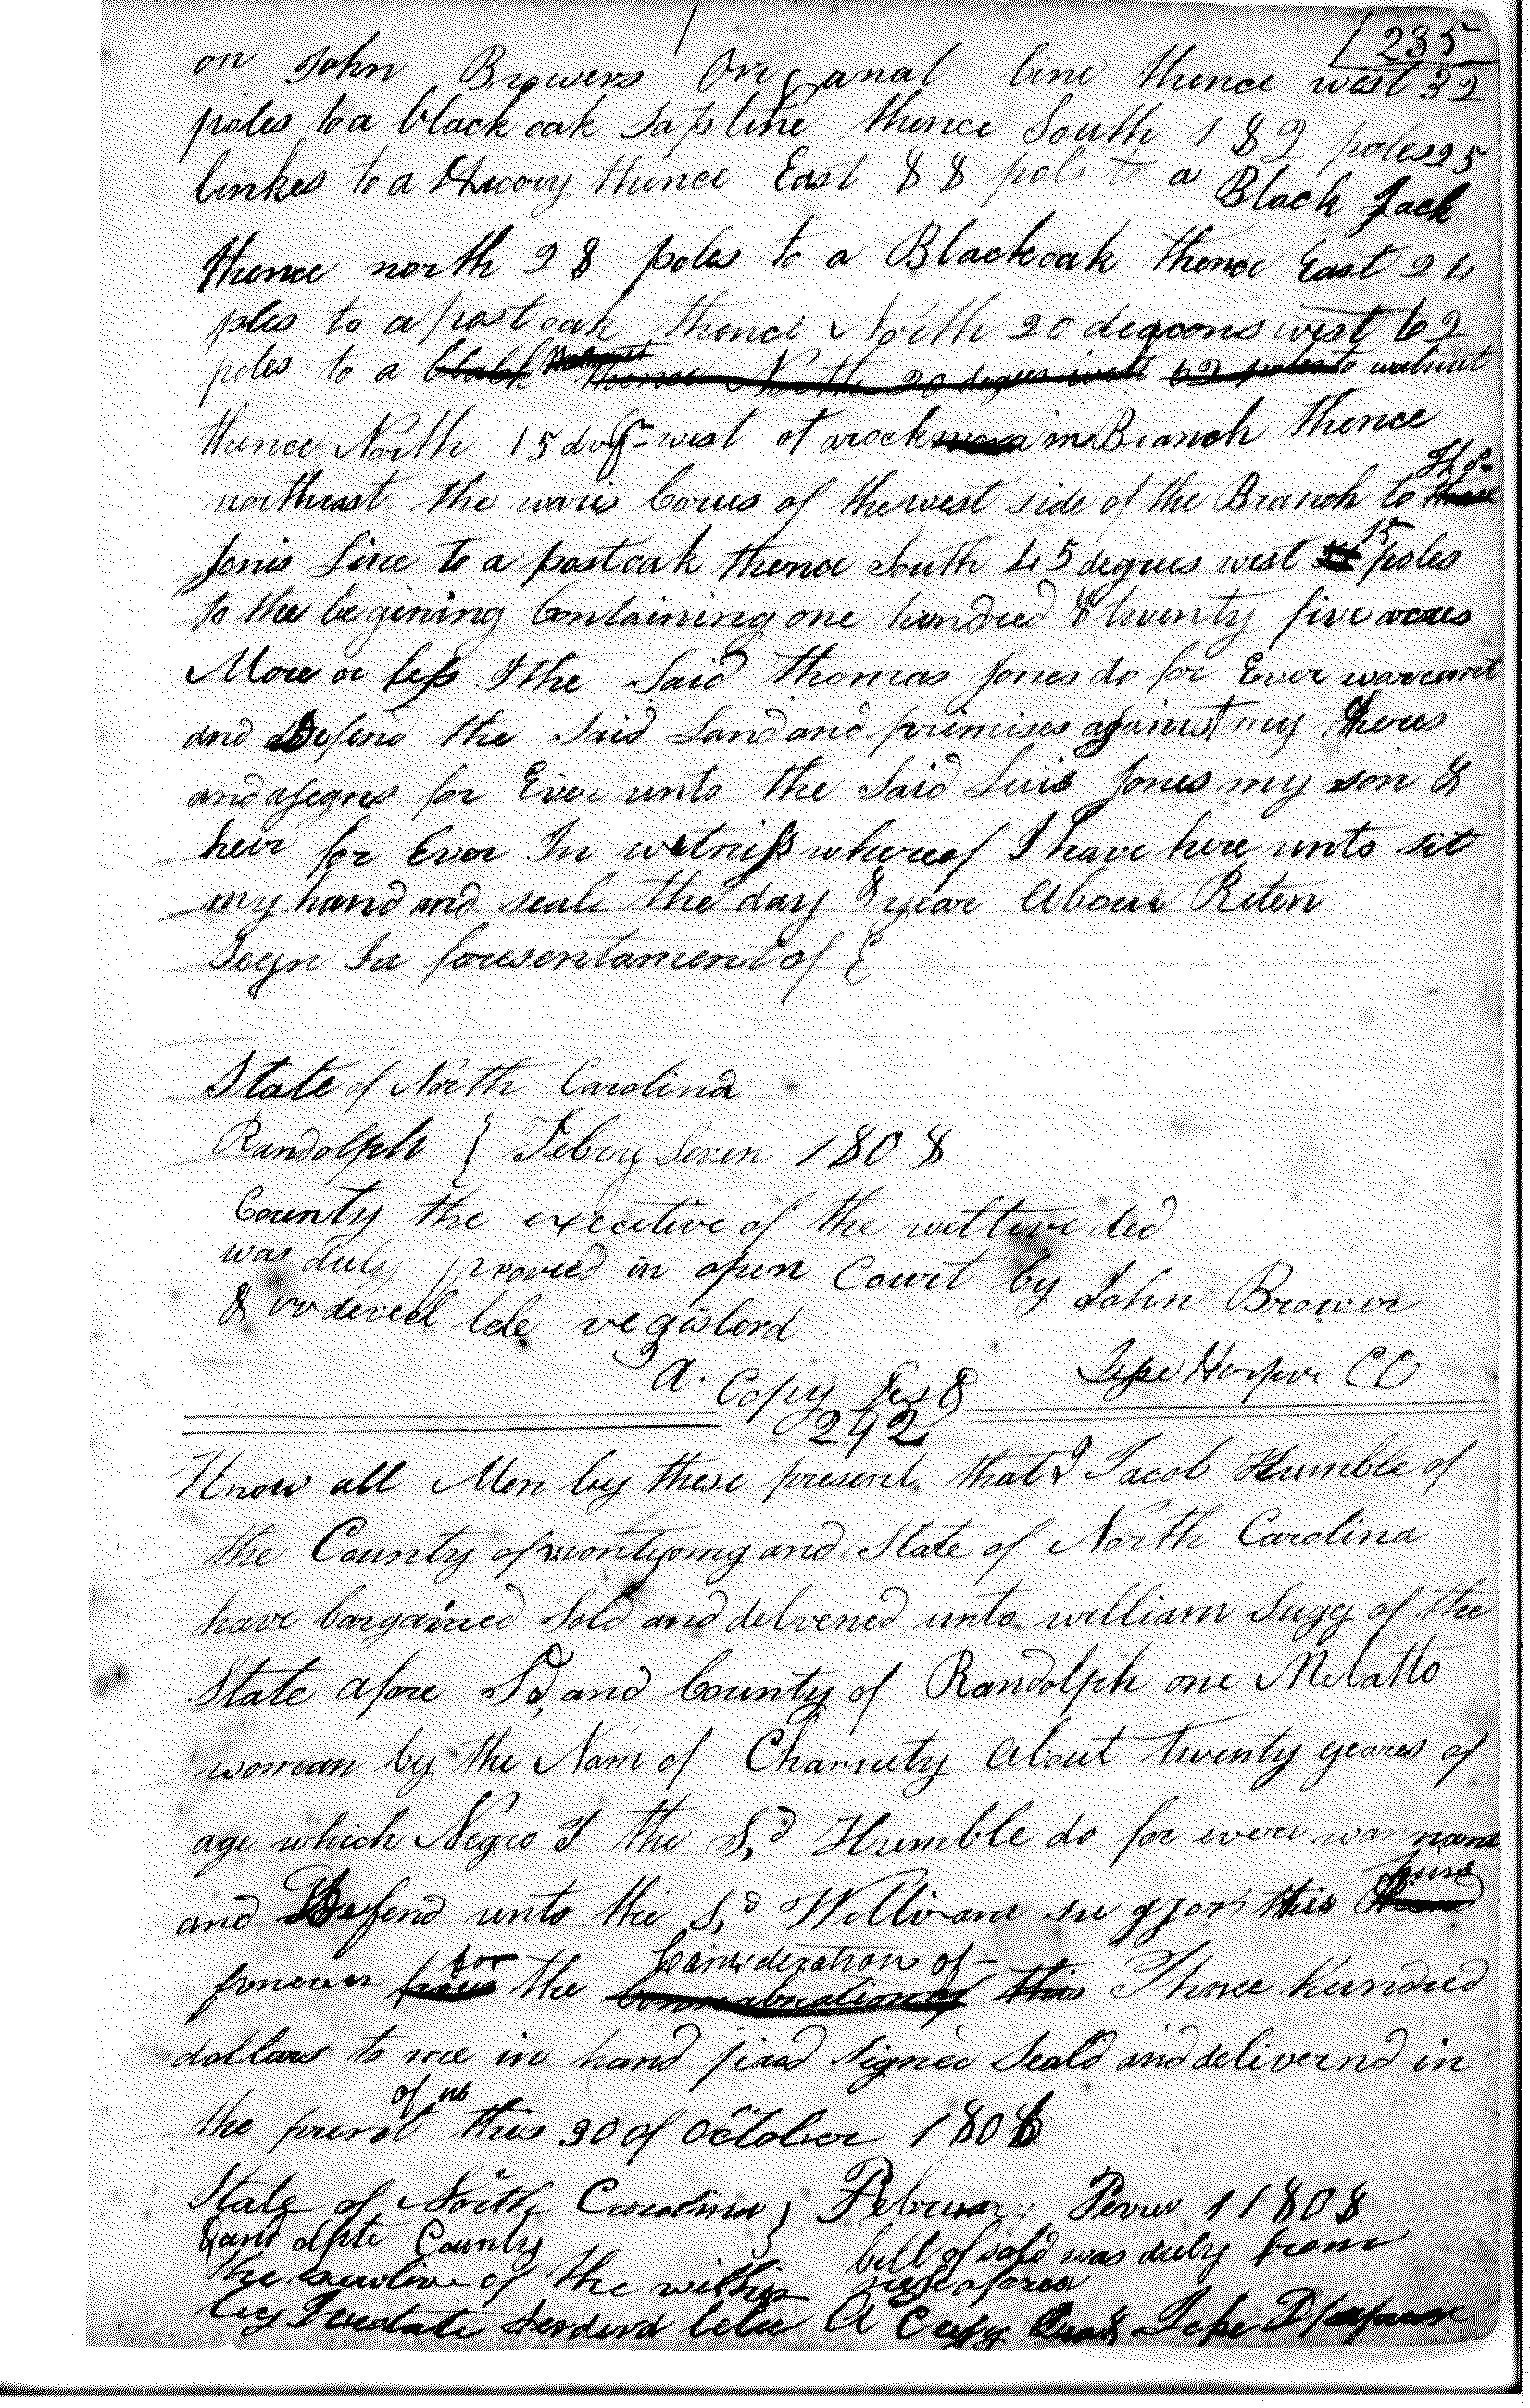 235
on John Browers Origanal line thence west 32
poles to a black oak sapline thence South 182 poles 25
linkes to a Hicory thence East 88 pols to a Black Jack
thence north 28 poles to a Blackoak thence East 24
ples to a post oak thence North 20 degreons west 62
poles to a black walnut thence North 20 degrees west 62 poles to walnut
thence North 15 deg west at a rock in Branch thence
northeast the waris Corus of the west side of the Branch to Thos
Jonis Line to a postoak thence South 45 degrees west 15 poles
to the begining Containing one hundred & twenty five acres
More or less I the Said Thomas Jones do for Ever warrant
and Defend the Said Land and primises against my heres
and asegns for Ever unto the Said Luis Jones my son &
heir for Ever In witniss whereof I have here unto sit
my hand and seal the day & year Above Riten
Segn In foresentament of
State of North Carolina
Randolph } Febry 1808
County the executive of the wittine ded
was duly proved in open Court by John Brower
& ordered to be registerd
A. Copy Test Jesse Harper CC
242
Know all Men by these present that I Jacob Humble of
the County of montgomg and State of North Carolina
have bargained Sold and delvened unto william Sugg of the
State afore Sd and County of Randolph one Melatto
woman by the Nam of Charrity About Twenty yeares of
age which Negro I the Sd Humble do for ever warrant
and Defend unto the Sd William sugg for this hurs
forever for the Consideration of this Three hundred
dollars to mee in hand paid signed Seald and deliverd in
the presnt of us this 30 of October 1806
State of North Carolina } Februar 1808
Randolph County
the executive of the within bill of sale was duly
by A Copy Jesse Harper